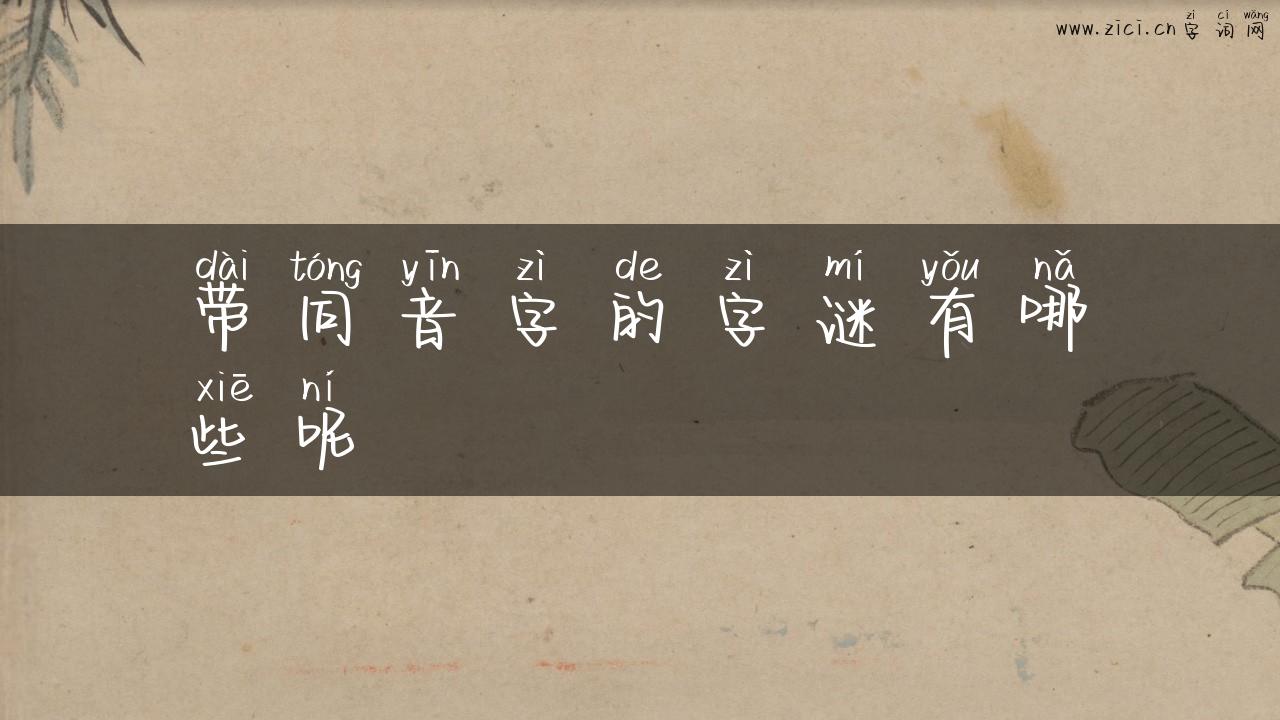 zì cí wǎng
www.zici.cn 字词网
dài tóng yīn zì de zì mí yǒu nǎ
带同音字的字谜有哪
xiē ní
些呢